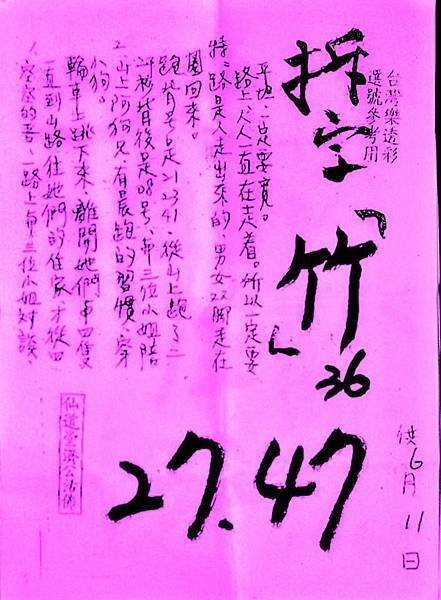 台灣樂透彩
選號參考用
拆字「竹」
36
27.47
供6月11日
1.寮寮的吾、一路上弟三位小姐对談、
一直到山路住她們的住家,才從四
輪車上跳下来,離開她們弟四隻
小狗。
2.山上阿狗兄有晨跑的習慣,穿
衫背後是08号、弟三位小姐陪
跑,背号是21.23.41.從山上跑了三
圈回来。
特:路是人走出來的,男女双脚走在
路上,人人一直在走着。所以一定要
平坦一定要寬。
仙道臺濟公活佛